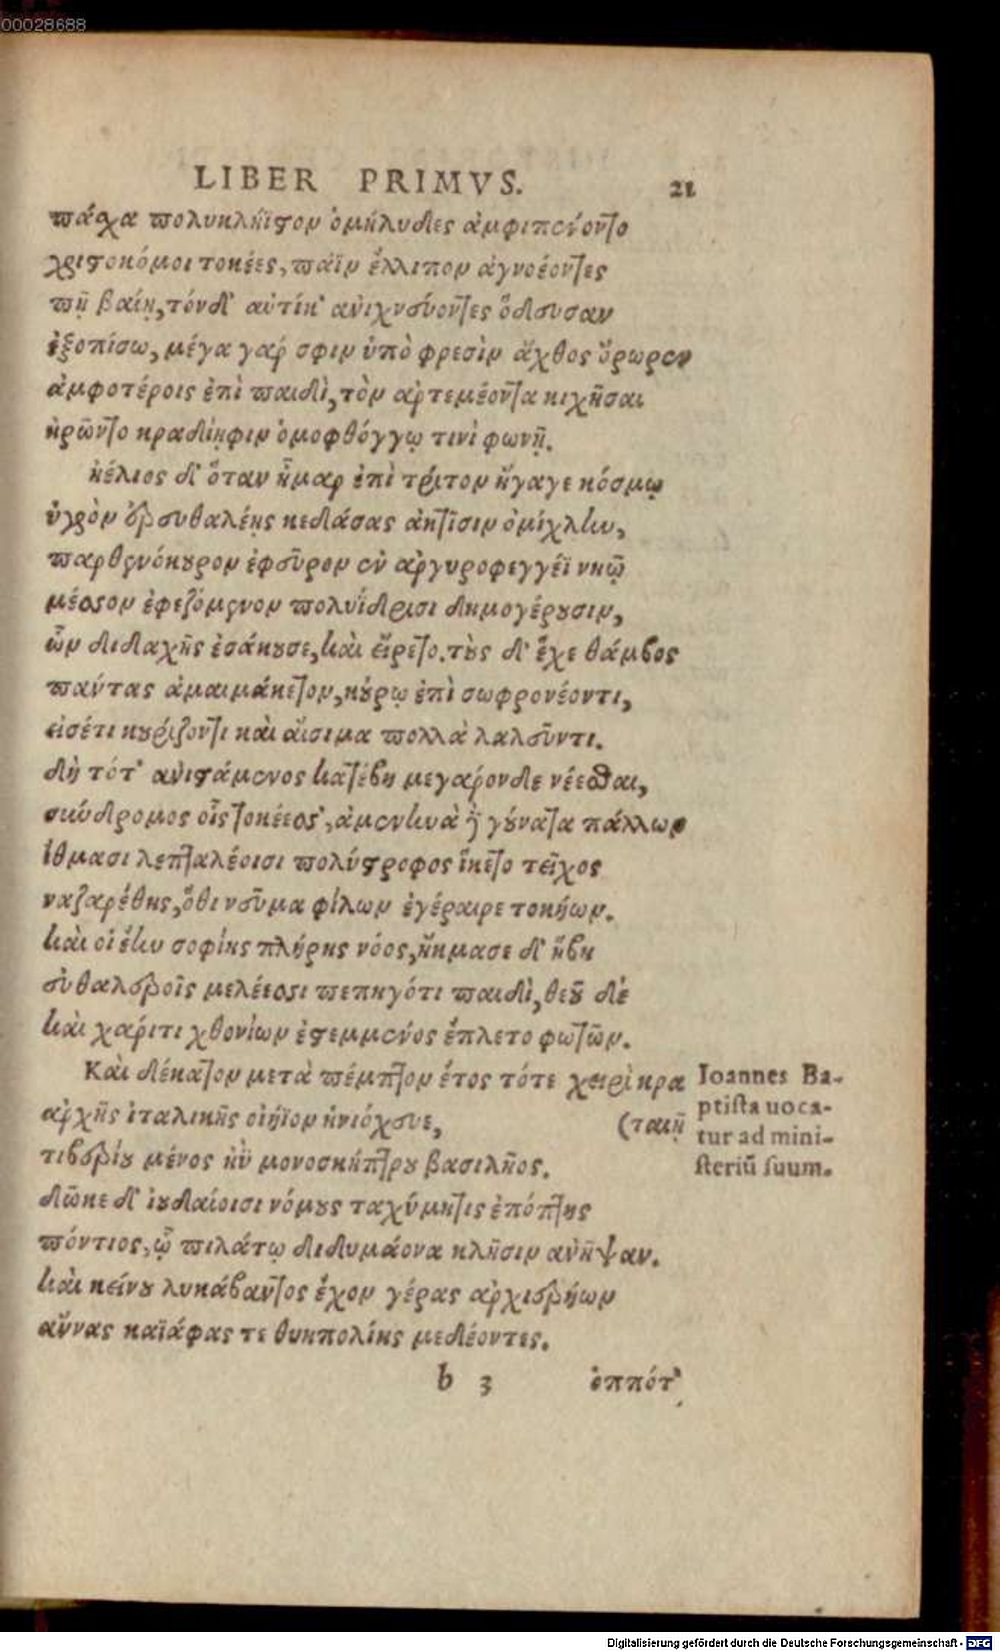 00028688
LIBER PRIMVS. 21
πάχα πολυκλήϊστον ὁμήλυδες ἀμφιπενόντο
χριστοκόμοι τοκέες, πάϊν ἔλλιπον ἀγνοέοντες
πῆ βαίη, τόνδ' αὐτίκ' ἀνιχνεύοντες ὅδευσαν
ἐξοπίσω, μέγα γάρ σφιν ὑπὸ φρεσὶν ἄχθος ὄρωρεν
ἀμφοτέροις ἐπὶ παιδὶ, τὸν ἀρτεμέοντα κιχῆσαι
ἠρῶντο κραδίηφιν ὁμοφθόγγῳ τινὶ φωνῇ.
ἠέλιος δ' ὅταν ἦμαρ ἐπὶ τρίτον ἤγαγε κόσμῳ
ὑγρὸν ἐρευθαλέης κεδάσας ἀκτῖσιν ὀμίχλην,
παρθενόκουρον ἐφεῦρον ἐν ἀργυροφεγγέϊ νηῷ
μέσσον ἐφεζόμενον πολυΐδρισι δημογέρουσιν,
ὧν διδαχῆς ἐσάκουσε, καὶ εἴρετο. τοὺς δ' ἔχε θάμβος
πάντας ἀμαιμάκετον, κούρῳ ἐπὶ σωφρονέοντι,
εἰσέτι κουρίζοντι καὶ αἴσιμα πολλὰ λαλεῦντι.
δὴ τότ' ἀνιστάμενος κατέβη μεγαρόνδε νέεσθαι,
σύνδρομος οἷς τοκέεσσ', ἀμενηνὰ δὲ γούνατα πάλλων
ἴθμασι λεπταλέοισι πολύστροφος ἵκετο τεῖχος
ναζαρέθης, ὅθι νεῦμα φίλων ἐγέραιρε τοκήων.
καὶ οἱ ἔην σοφίης πλήρης νόος, ἤκμασε δ' ἥβη
εὐθαλερσῖς μελέεσσι πεπηγότι παιδὶ, θεοῦ δὲ
καὶ χάριτι χθονίων ἐστεμμένος ἔπλετο φωτῶν.
Καὶ δέκατον μετὰ πέμπτον ἔτος τότε χειρὶ κρα
ἀρχῆς ἰταλικῆς οἰήϊον ἡνιόχευε, (ταιῇ
τιβερίου μένος ἠῢ μονοσκήπτρου βασιλῆος.
δῶκε δ' ἰουδαίοισι νόμους ταχύμητις ἐπόπτης
πόντιος, ᾧ πιλάτῳ διδυμάονα κλῆσιν ἀνῆψαν.
καὶ κείνου λυκάβαντος ἔχον γέρας ἀρχιερήων
αὔνας καϊάφας τε θυηπολίης μεδέοντες.
Ioannes Ba-
ptista uoca-
tur ad mini-
steriū suum.
b 3 ὁππότ'
Digitalisierung gefördert durch die Deutsche Forschungsgemeinschaft - DFG